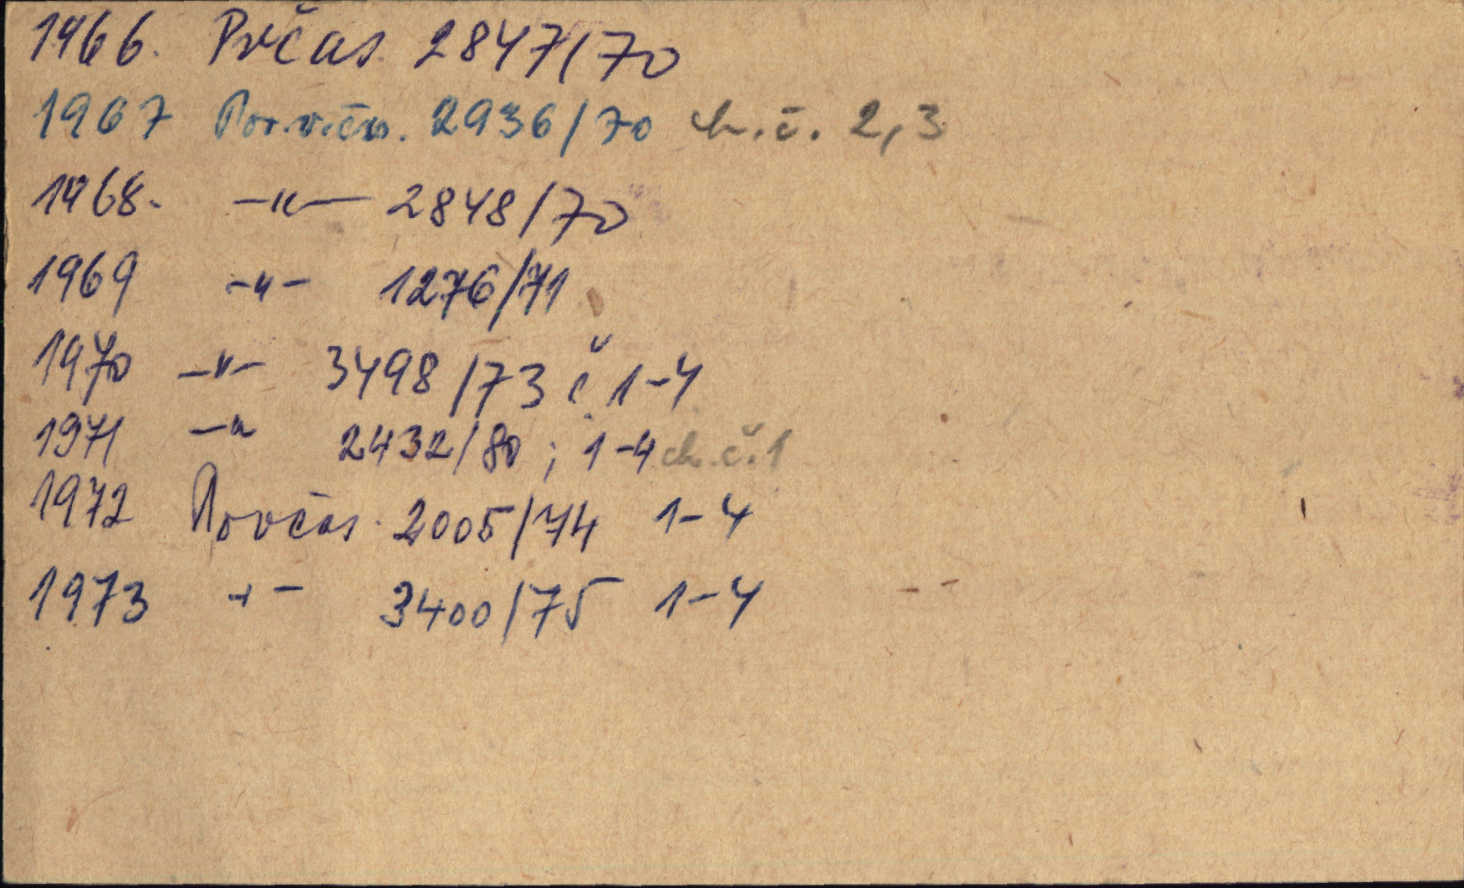 1966. Prčas. 2847/70
1967 Por.v.čas. 2936/70 ch.č. 2,3
1968. —"— 2848/70
1969 -"- 1276/71
1970 -"- 3498/73 č. 1-4
1971 -" 2432/80; 1-4 ch.č.1
1972 Povčas. 2005/74 1-4
1973 -"- 3400/75 1-4